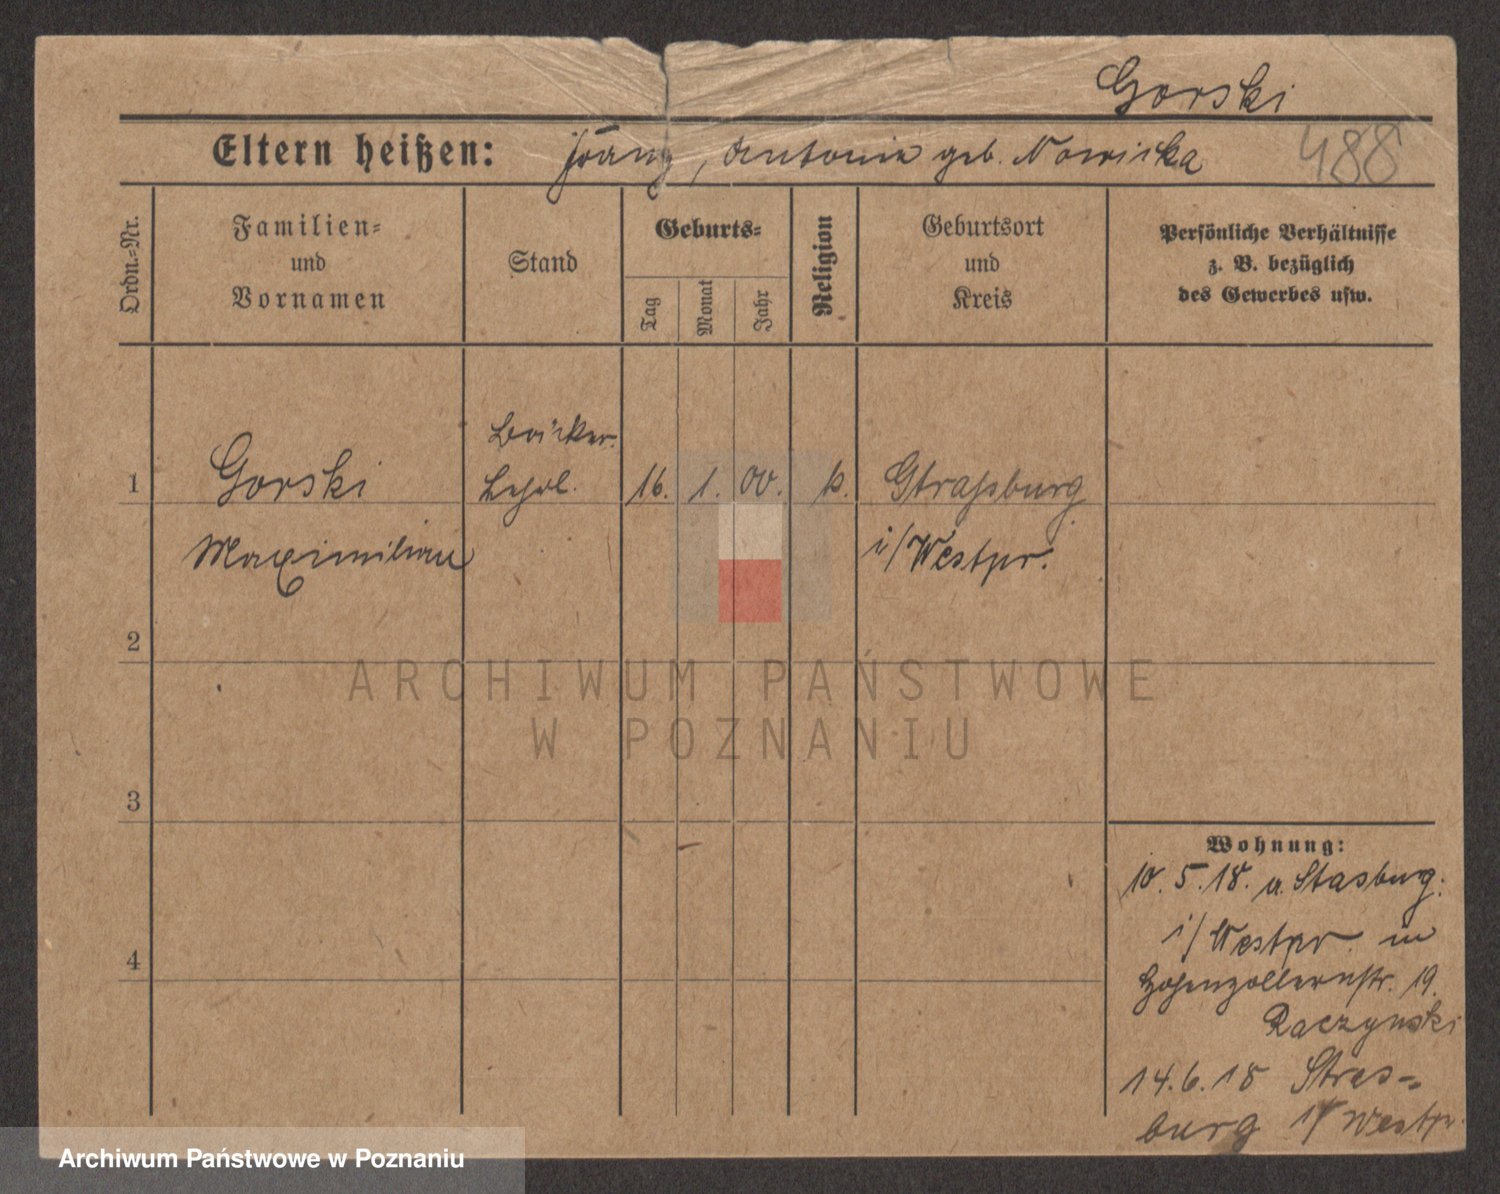 Gorski
Eltern heißen: Franz, Antonie geb. Nowicka 488
Ordn.-Nr.
Familien-
und
Vornamen
Stand
Geburts-
Tag
Monat
Jahr
Religion
Geburtsort
und
Kreis
Persönliche Verhältnisse
z. B. bezüglich
des Gewerbes usw.
1
Gorski
Maximilian
Bäcker.
Lehrl.
16. 1. 00. k.
Straßburg
i/Westpr.
2
3
4
Wohnung:
10.5.18. a. Stasburg.
i/Westpr. in
Hohenzollernstr. 19.
Raczynski
14.6.18 Stras-
burg i/Westpr.
ARCHIWUM PAŃSTWOWE
W POZNANIU
Archiwum Państwowe w Poznaniu